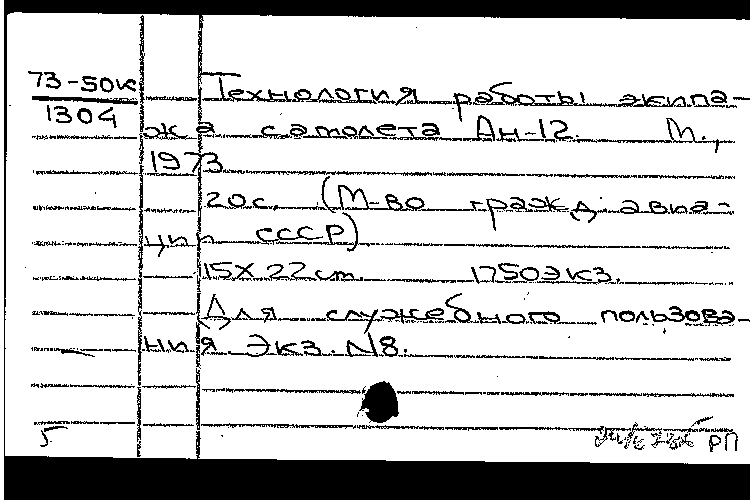 73-50к Технология работы экипа-
1304 жа самолета Ан-12. М.,
1973
20с. (М-во гражд. авиа-
ции СССР)
15Х22см. 1750экз.
Для служебного пользова-
ния. Экз. N8.
5 РП